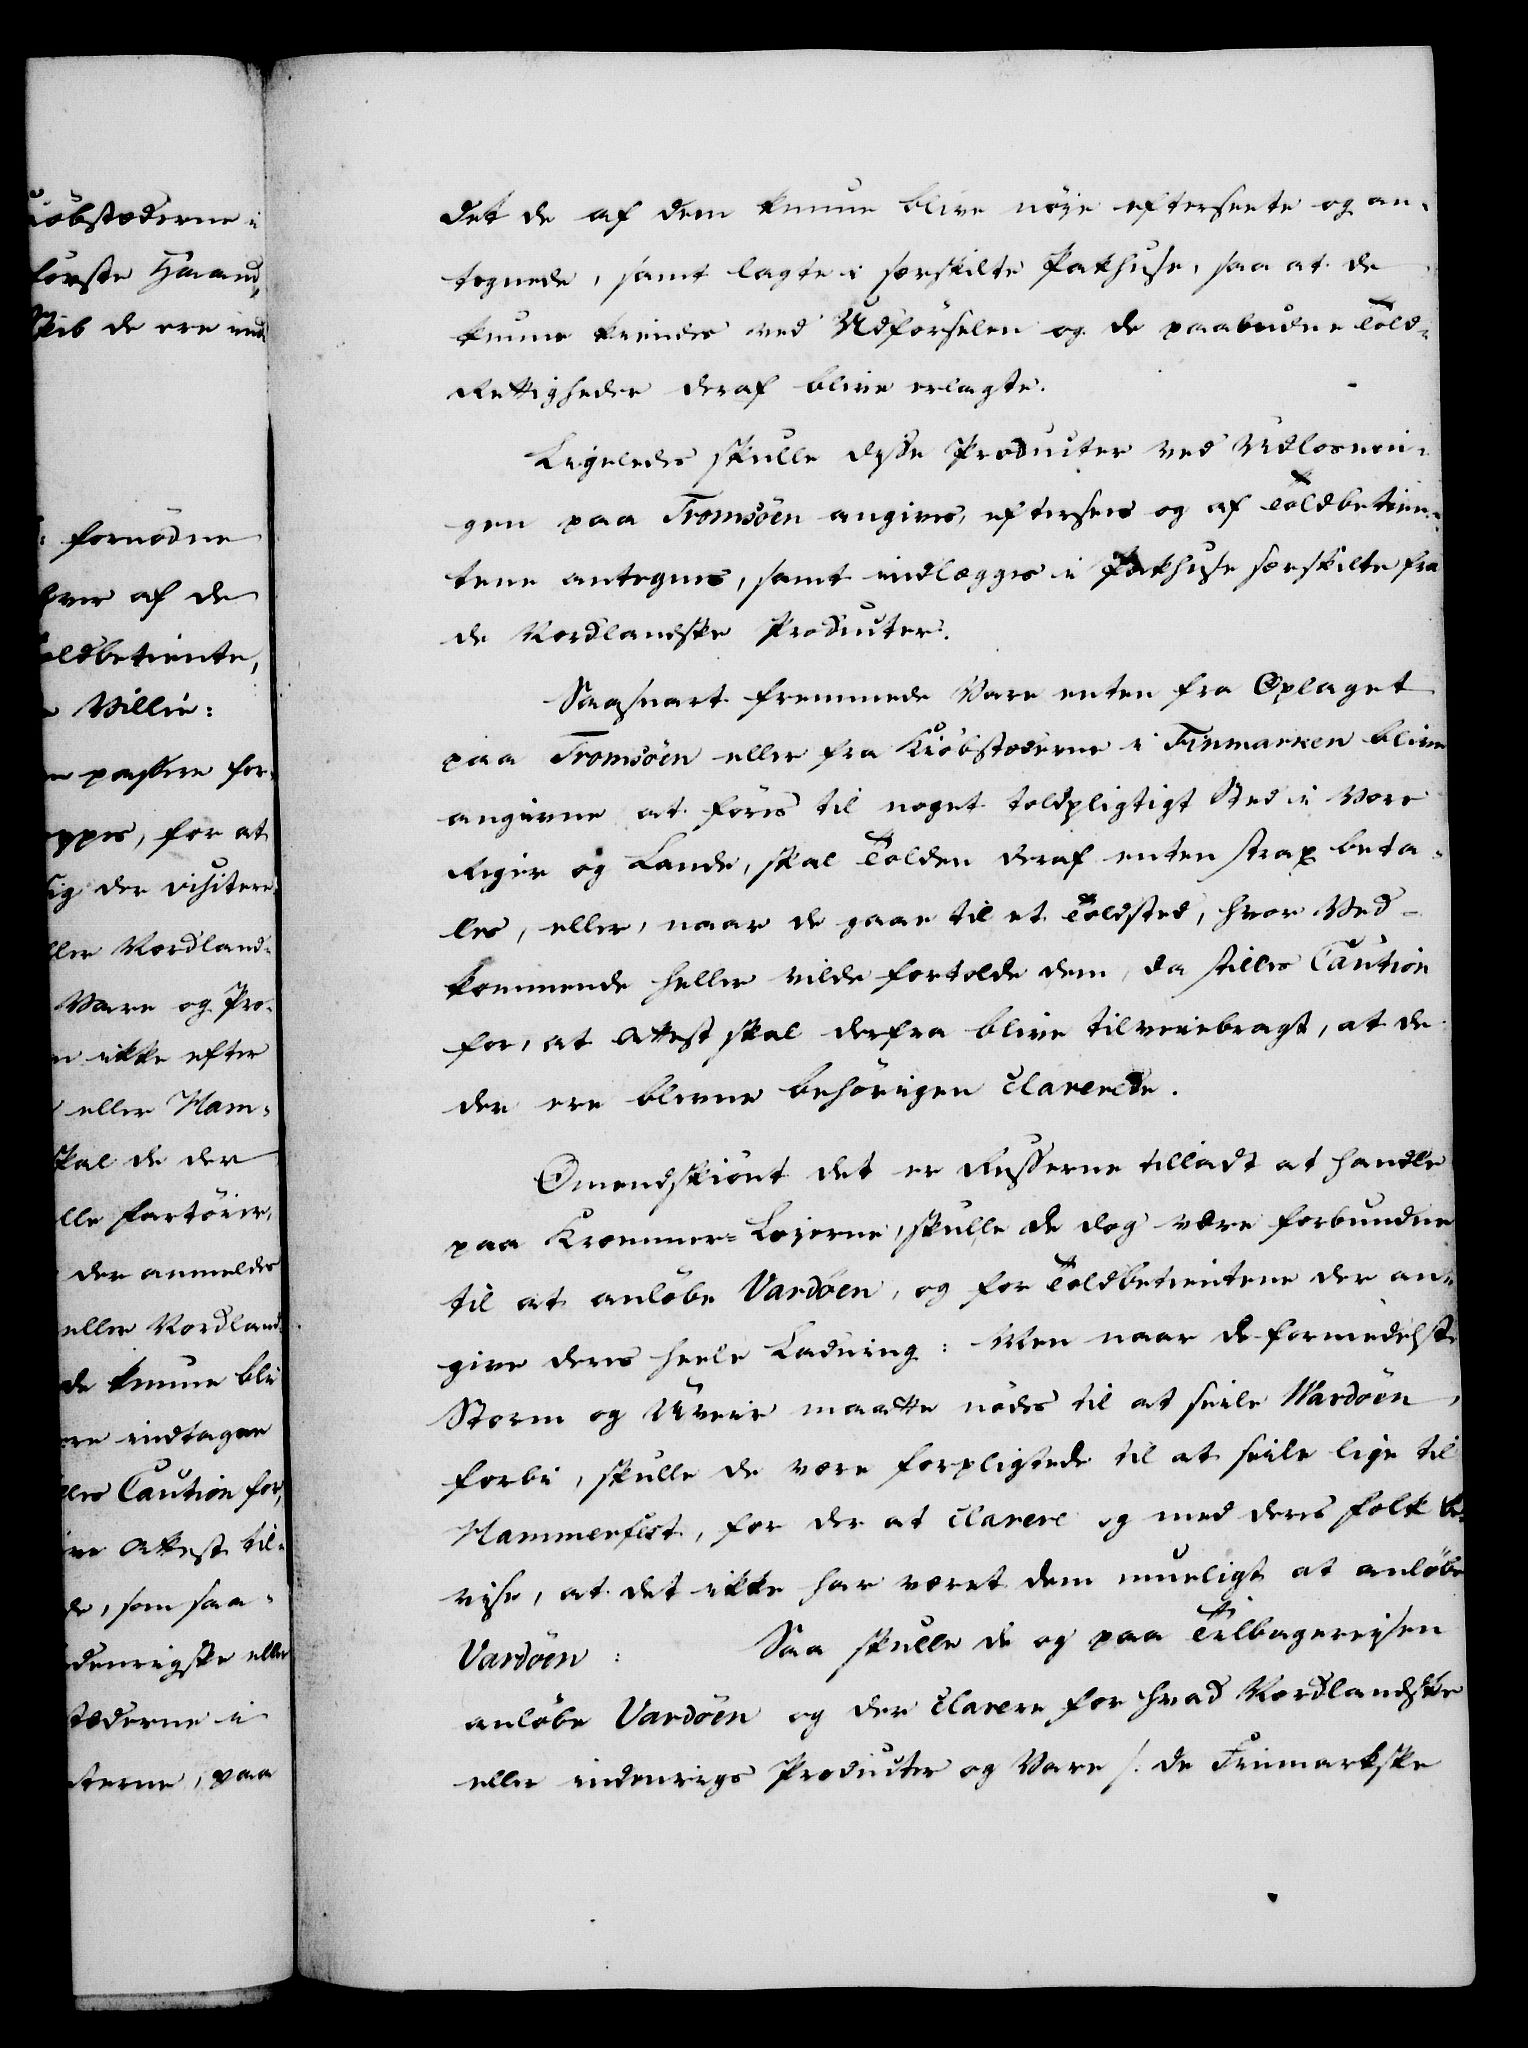 kiöbstæderne i
første Haand,
Skib de ere ind
fornødne
hver af de
oldbetiente,
Villie:
passere for-
for at
der visitere
ller Nordland-
Vare og Pro-
ikke efter
eller Ham-
skal de der
lle fartöier,
der anmeldes
eller Nordland-
de kunne bli
ere indtagne
lles Caution for,
Attest til-
de, som saa-
denrigske eller
stæderne i
terne, paa
det de af dem kunne blive nöje efterseete og an-
tegnede, samt lagte i særskilte Pakhuse, saa at de
kunne kiendes ved Udförselen og de paabudne Told-
Rettigheder deraf blive erlagte.
Ligeledes skulle disse Producter ved Udlosnin-
gen paa Tromsöen angives, efterseес og af Toldbetien-
tene antegnes, samt indlægges i Pakhuse særskilte fra
de Nordlandske Producter.
Saasnart fremmede Vare enten fra Oplaget
paa Tromsöen eller fra Kiöbstæderne i Finmarken blive
angivne at föres til noget toldpligtigt Sted i Vore
Riger og Lande, skal Tolden deraf enten strax beta-
les, eller, naar de gaae til et Toldsted, hvor Ved-
kommende heller vilde fortolde dem, da stilles Caution
for, at Attest skal derfra blive tilveiebragt, at de
der ere blevne behörigen clarerede.
Omendskiönt det er Russerne tilladt at handle
paa Kræmmer-Leierne, skulle de dog være forbundne
til at anlöbe Vardöen, og for Toldbetientene der an-
give deres heele Ladning: Men naar de formedelst
Storm og Uveir maatte nödes til at seile Wardöen,
forbi, skulle de være forpligtede til at seile lige til
Hammerfest, for der at clarere og med deres folk be-
vise, at det ikke har været dem mueligt at anlöbe
Vardöen: Saa skulle de og paa Tilbagereisen
anlöbe Vardöen og der clarere for hvad Nordlandske
eller indenrigs Producter og Vare /: de Finmarkske